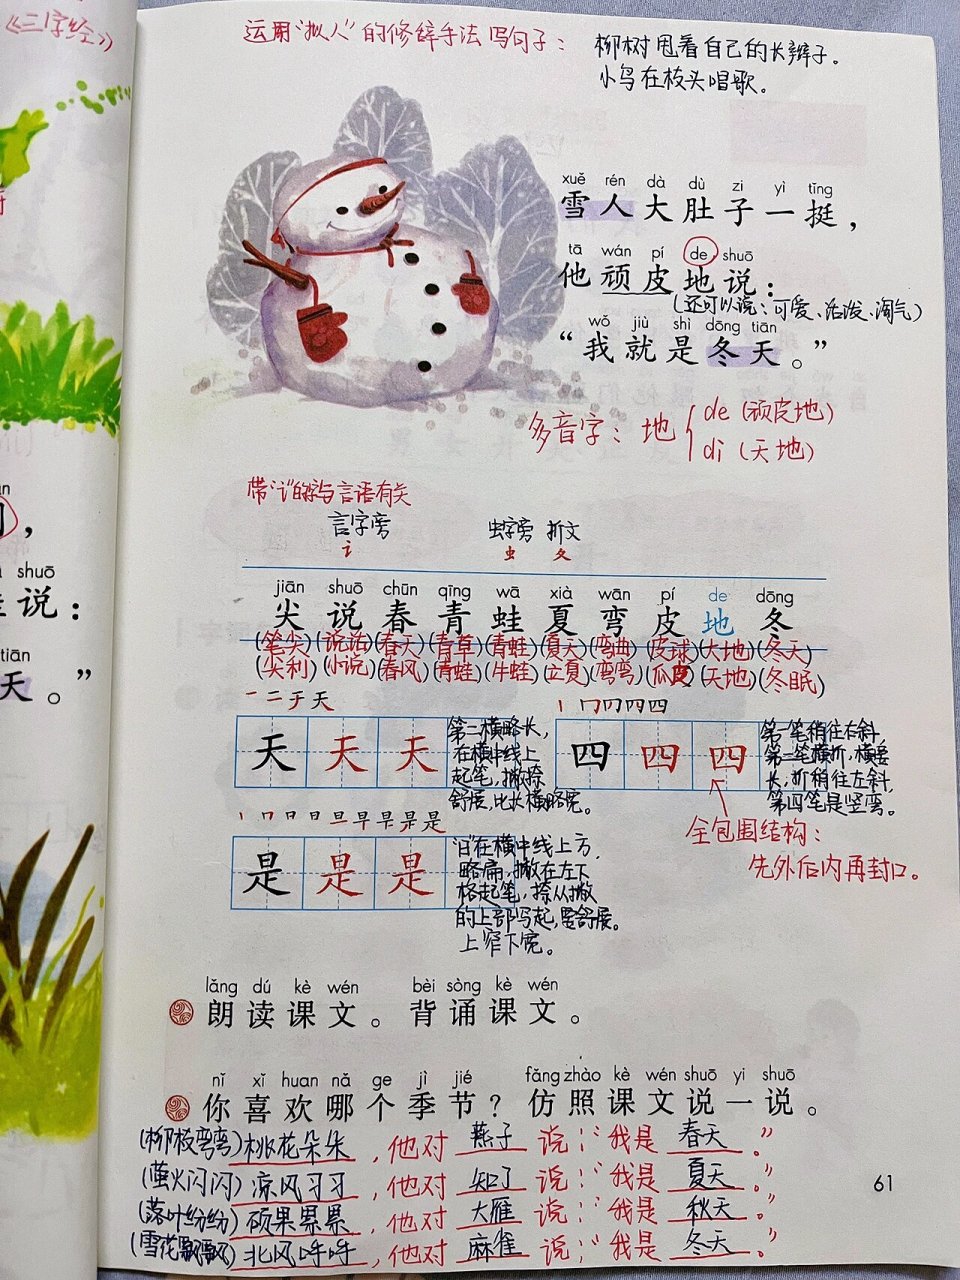 《三字经》
运用“拟人”的修辞手法写句子：
柳树甩着自己的长辫子。
小鸟在枝头唱歌。
xuě rén dà dù zi yì tǐng
雪人大肚子一挺，
tā wán pí de shuō
他顽皮地说：
（还可以说：可爱、活泼、淘气）
wǒ jiù shì dōng tiān
“我就是冬天。”
多音字：地
de（顽皮地）
dì（天地）
，
shuō
说：
tiān
天。”
带“讠”的字与言语有关
言字旁 虫字旁 折文
讠 虫 夂
jiān shuō chūn qīng wā xià wān pí de dōng
尖 说 春 青 蛙 夏 弯 皮 地 冬
（笔尖）（说话）（春天）（青草）（青蛙）（夏天）（弯曲）（皮球）（大地）（冬天）
（尖利）（小说）（春风）（青蛙）（牛蛙）（立夏）（弯弯）（瓜皮）（天地）（冬眠）
一 二 于 天
天 天 天
第二横略长，
在横中线上
起笔，撇捺
舒展，比长横略宽。
四 四 四
第一笔稍往右斜，
第二笔横折，横要
长，折稍往左斜，
第四笔是竖弯。
全包围结构：
先外后内再封口。
是 是 是
“日”在横中线上方，
略扁，撇在左下
格起笔，捺从撇
的上部写起，要舒展。
上窄下宽。
lǎng dú kè wén bèi sòng kè wén
朗读课文。背诵课文。
nǐ xǐ huan nǎ ge jì jié fǎng zhào kè wén shuō yi shuō
你喜欢哪个季节？仿照课文说一说。
（柳枝弯弯）桃花朵朵，他对燕子说：“我是春天。”
（萤火闪闪）凉风习习，他对知了说：“我是夏天。”
（落叶纷纷）硕果累累，他对大雁说：“我是秋天。”
（雪花飘飘）北风呼呼，他对麻雀说：“我是冬天。”
61